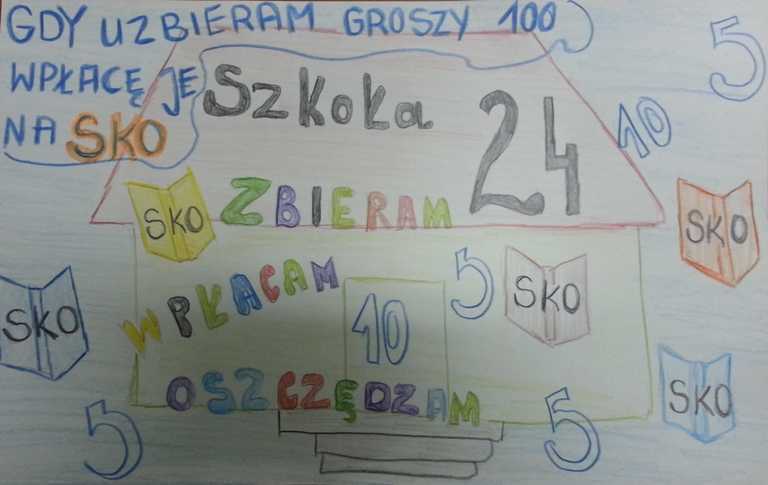 GDY UZBIERAM GROSZY 100
WPŁACĘ JE
NA SKO
5
Szkoła 24
10
SKO
ZBIERAM
SKO
SKO
WPŁACAM
5
SKO
10
SKO
OSZCZĘDZAM
5
5